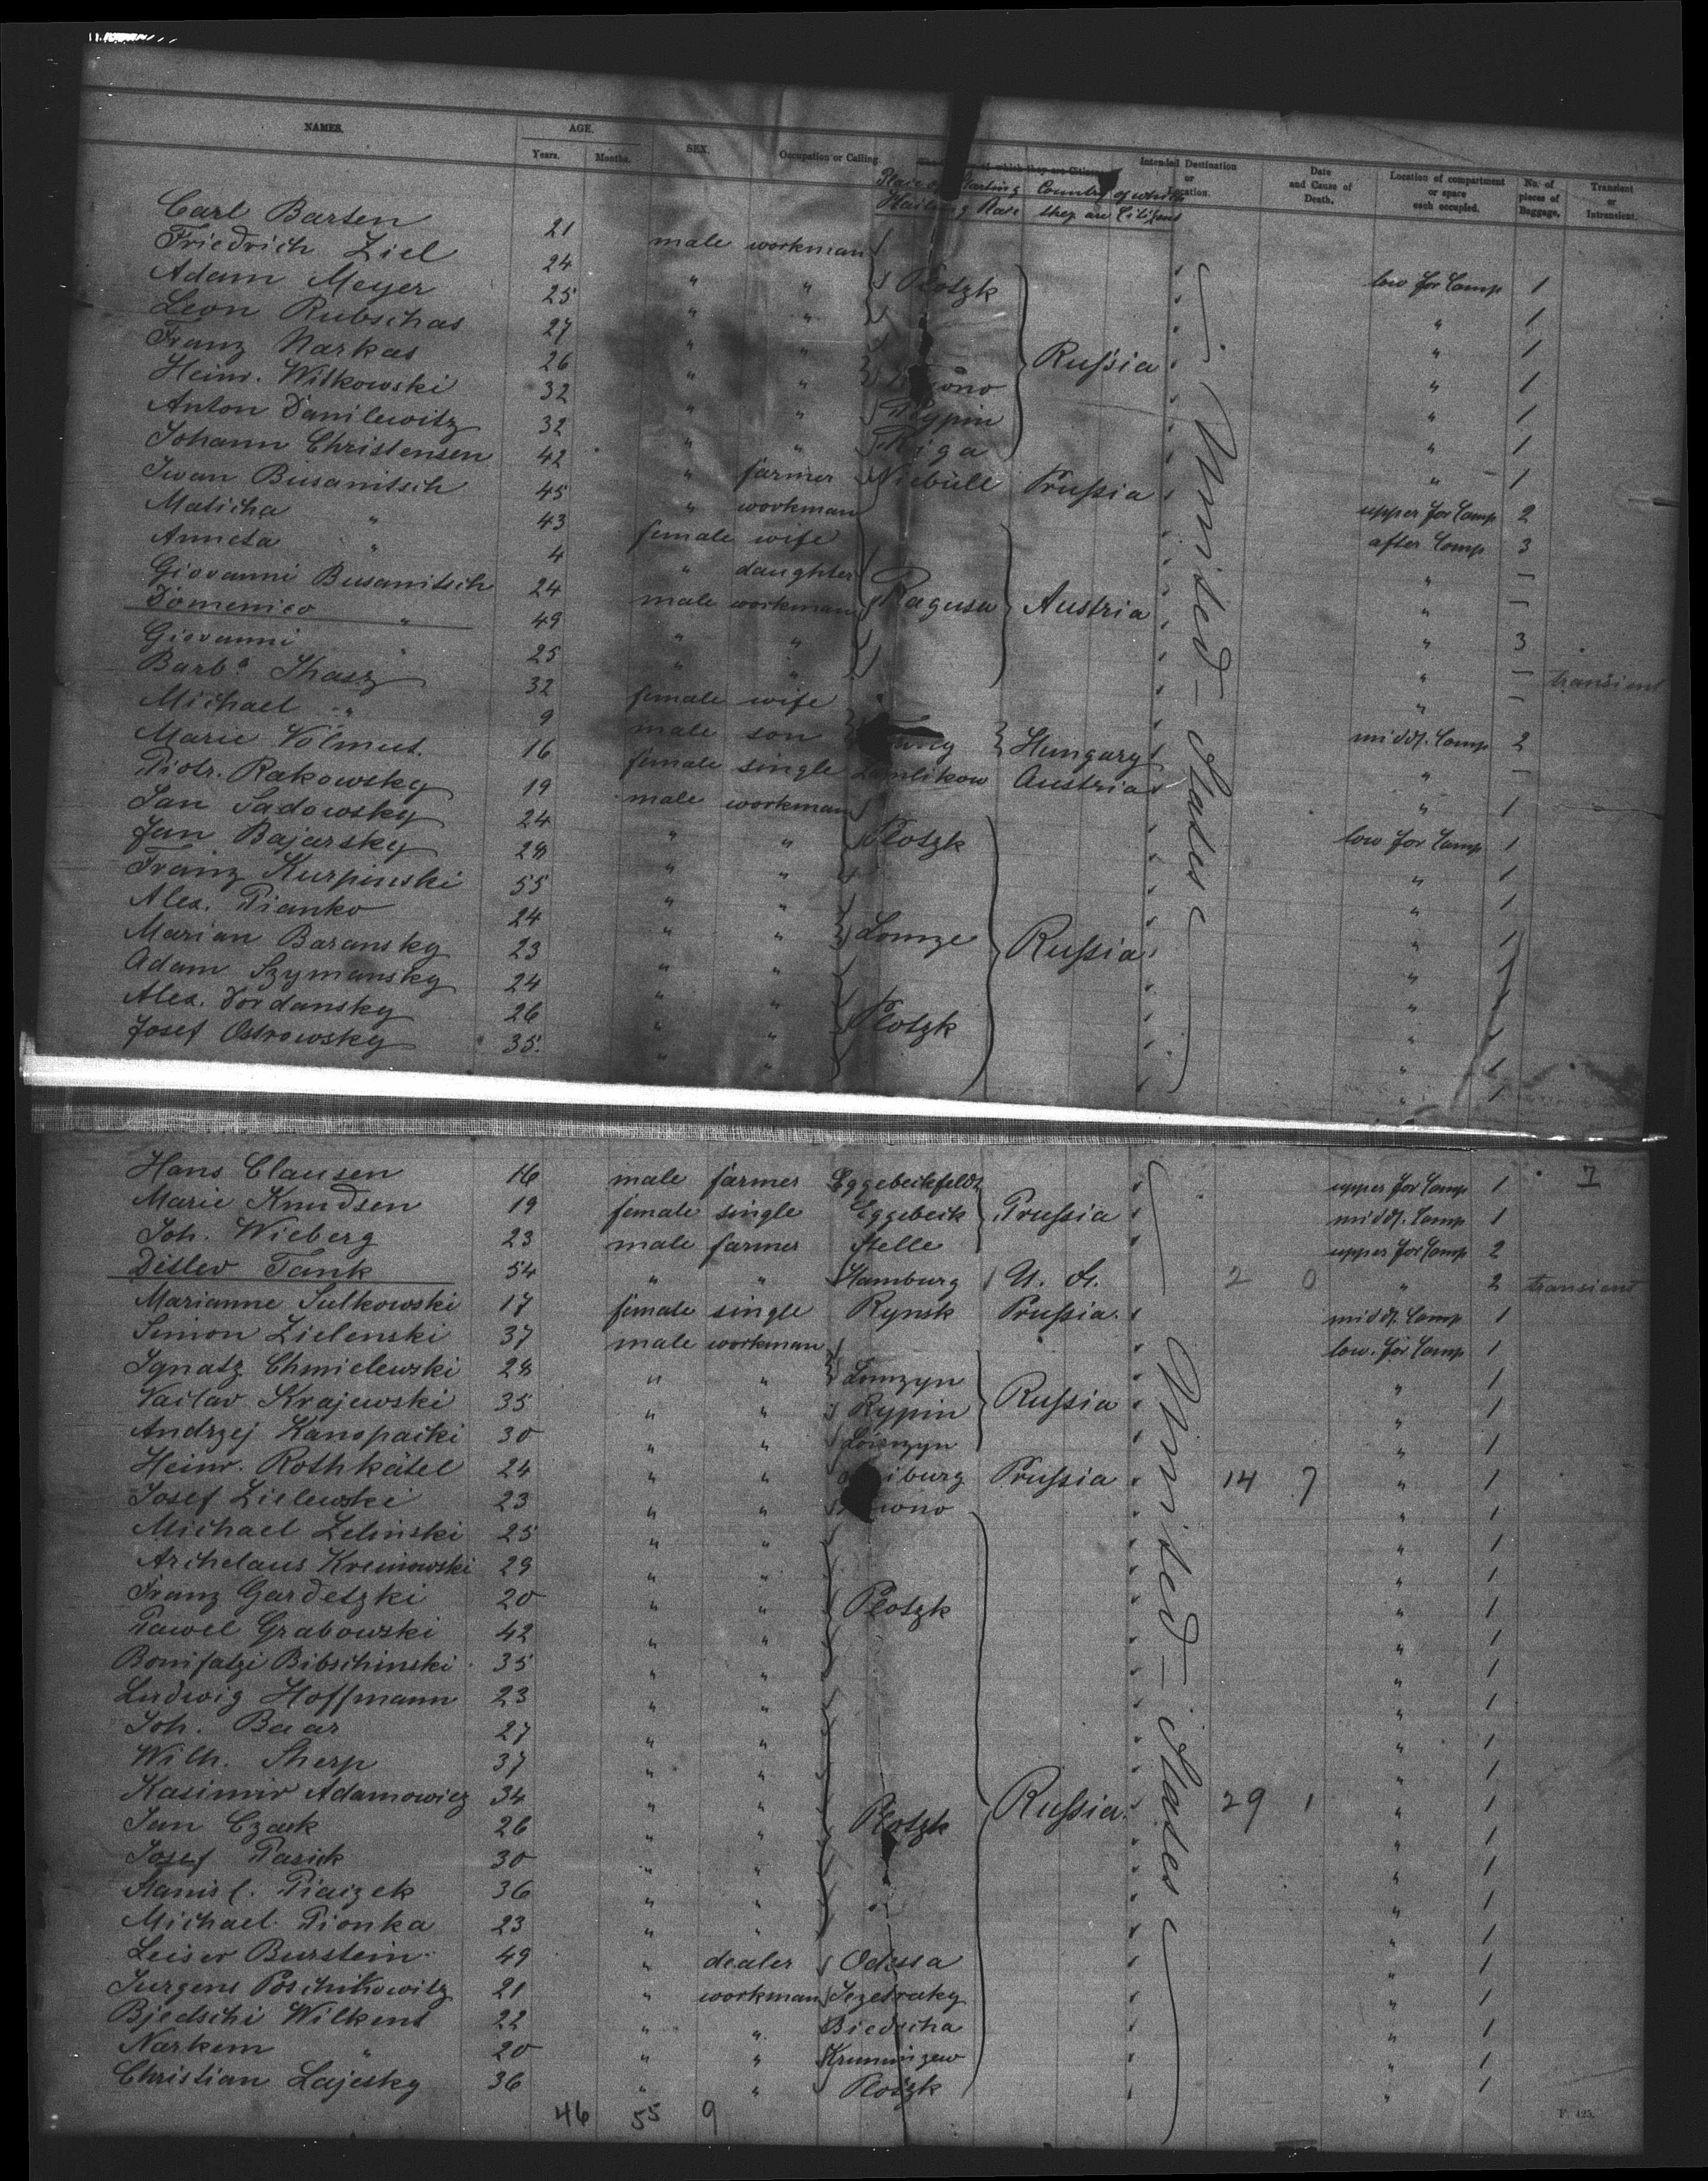 NAMES. AGE. Years. Months. SEX. Occupation or Calling. Intended Destination or Location. Date and Cause of Death. Location of compartment or space each occupied. No. of pieces of Baggage. Transient or Intransient.
Country of which they are Citizens
Carl Barten 21 male workman low for Comp 1
Friedrich Ziel 24 " " Plotzk " 1
Adam Meyer 25 " " " 1
Leon Rubschas 27 " " " 1
Franz Narkas 26 " " Russia " 1
Heinr. Witkowski 32 " " Rypin " 1
Anton Danilewitz 32 " " Riga " 1
Johann Christensen 42 " farmer Niebüll Prussia upper for Comp 2
Iwan Busanitsch 45 " workman after Comp 3
Maticha " 43 female wife " —
Anneta " 4 " daughter " —
Giovanni Busanitsch 24 male workman Ragusa Austria " 3
Domenico " 49 " " " — transient
Giovanni " 25 " " " —
Barba. Ihasz 32 female wife middl. Comp 2
Michael " 9 male son Hungary " —
Marie Volmut. 16 female single Austria " 1
Piotr. Rakowsky 19 male workman low for Comp 1
Jan Sadowsky 24 " " Plotzk " 1
Jan Bajarsky 28 " " " 1
Franz Kurpinski 55 " " " 1
Alex. Pianko 24 " " Lomze " 1
Marian Baransky 23 " " Russia " 1
Adam Szymansky 24 " " " 1
Alex. Dordansky 26 " " Plotzk " 1
Josef Ostrowsky 35. " " " 1
United States
Hans Clausen 16 male farmer Eggebeckfeldt upper for Comp 1 I
Marie Knudsen 19 female single Eggebeck Prussia middl. Comp 1
Joh. Wieberg 23 male farmer Stelle upper for Comp 2
Detlev Tank 54 " " Hamburg U. S. 2 0 " 2 transient
Marianne Sulkowski 17 female single Rynsk Prussia. middl. Comp 1
Simon Zielenski 37 male workman low. for Comp 1
Ignatz Chmielewski 28 " " Lomzyn " 1
Vaclav Krajewski 35 " " Rypin Russia " 1
Andrzej Kanopacki 30 " " Lomzyn " 1
Heinr. Rothkätel 24 " " Prussia 14 7 " 1
Josef Zielewski 23 " " " 1
Michael Zelinski 25 " " " 1
Archelaus Kreinowski 29 " " " 1
Franz Gardetzki 20 " " Plotzk " 1
Pawel Grabowski 42 " " " 1
Bonifatzi Bibschinski 35 " " " 1
Ludwig Hoffmann 23 " " " 1
Joh. Baar 27 " " " 1
Wilh. Sherp 37 " " " 1
Kasimir Adamowicz 34 " " Russia. 29 1 " 1
Jan Czack 26 " " Plotzk " 1
Josef Pasick 30 " " " 1
Stanisl. Piaizek 36 " " " 1
Michael Pionka 23 " " " 1
Leiser Burstein 49 " dealer Odessa " 1
Jurgens Poschikowitz 21 " workman Jezetraky " 1
Bjedschi Wilkens 22 " " Biedscha " 1
Narkem " 20 " " Krummzew " 1
Christian Lajesky 36 " " Plotzk " 1
United States
46 55 9
F. 425.